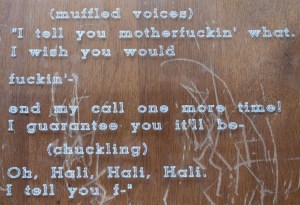 (muffled voices)
"I tell you motherfuckin' what.
I wish you would
fuckin'-
end my call one more time!
I guarantee you it'll be-
(chuckling)
Oh, Hali, Hali, Hali.
I tell you f-"